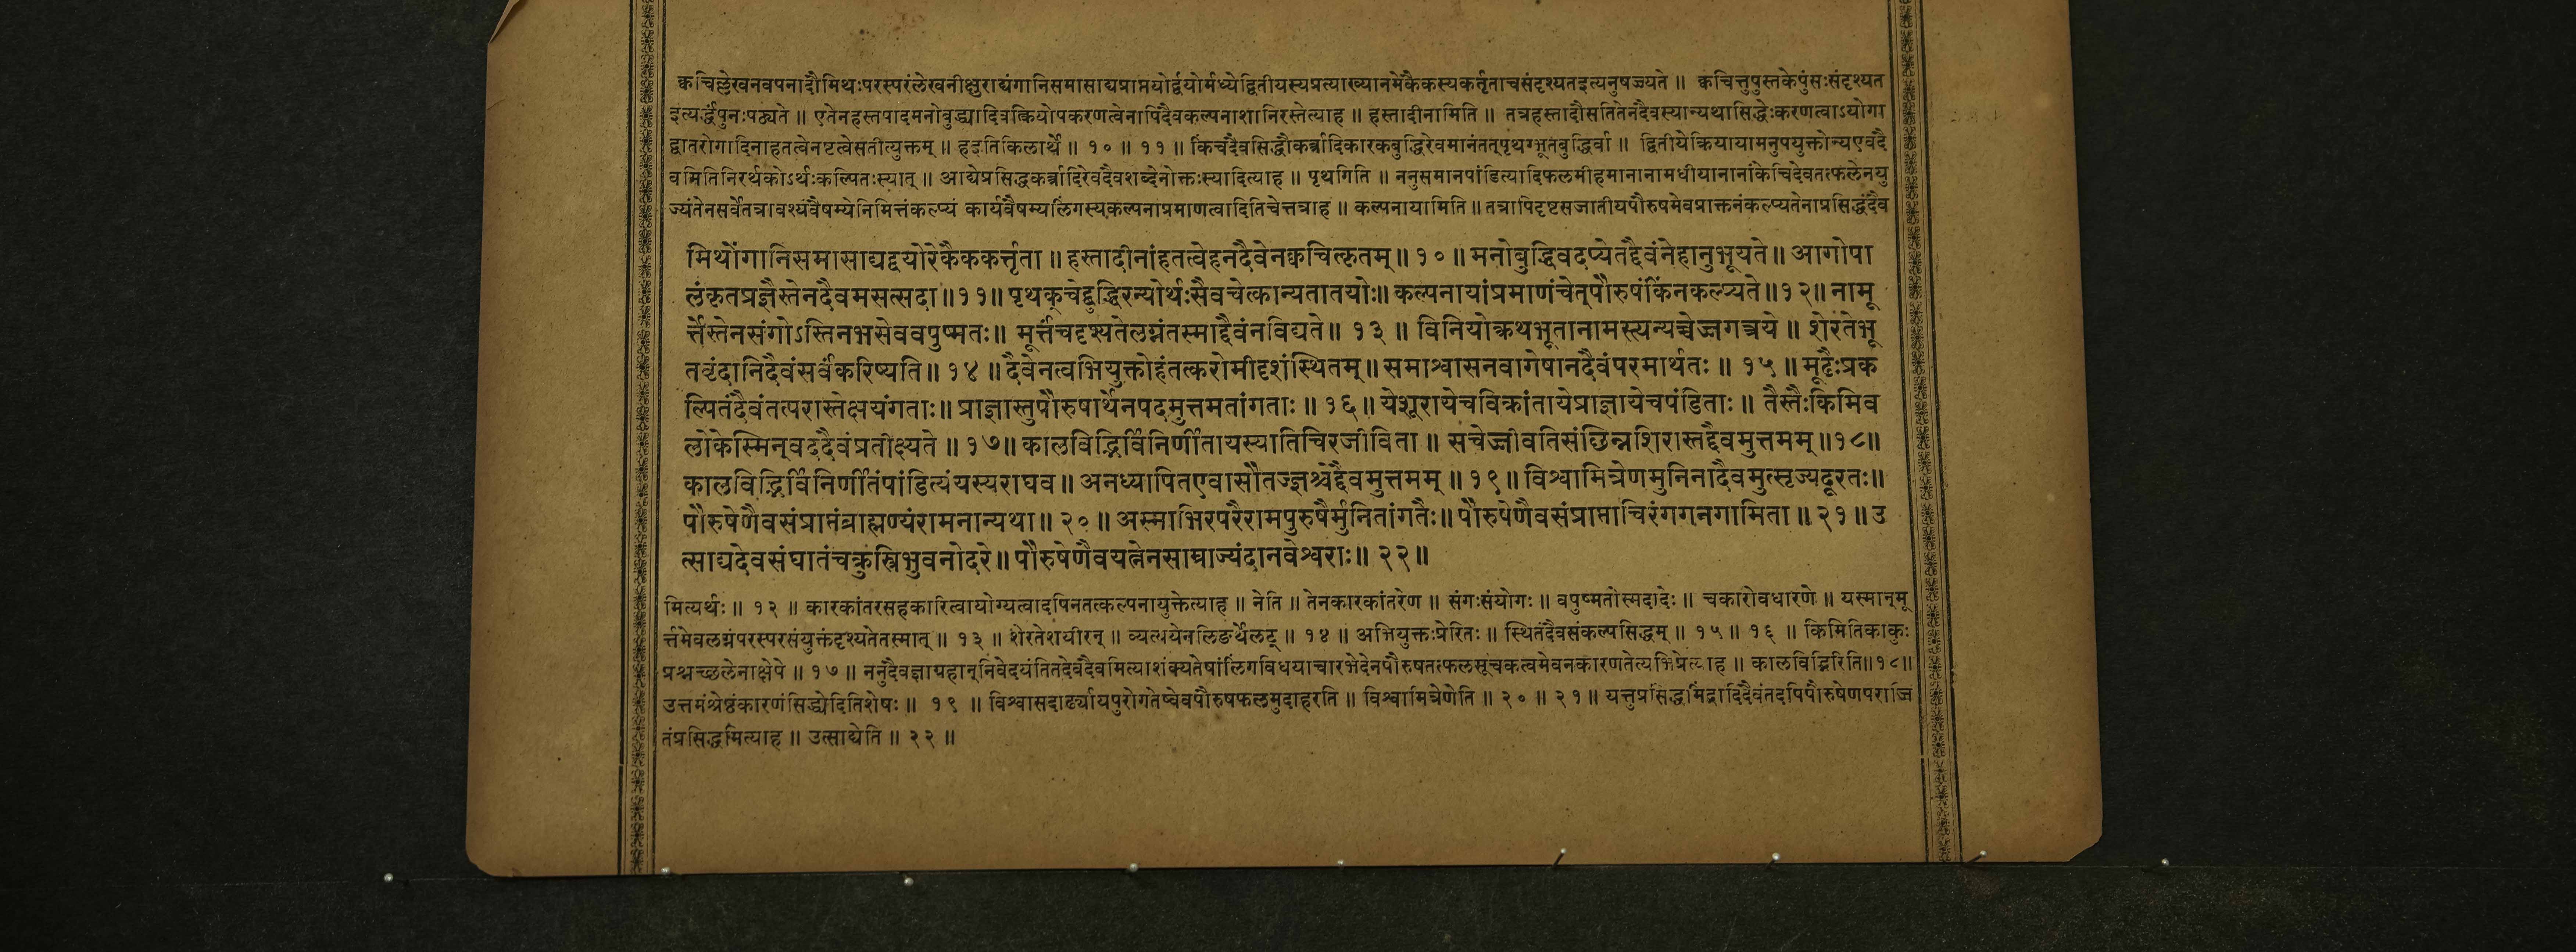 क्वचिल्लेखनवपनादौमिथःपरस्परंलेखनीक्षुराद्यंगानिसमासाद्यप्राप्तयोर्द्वयोर्मध्येद्वितीयस्यप्रत्याख्यानमेकैकस्यकर्तृताचसंदृश्यतइत्यनुषज्यते ॥ क्वचित्तुपुस्तकेपुंसःसंदृश्यत
इत्यर्द्धंपुनःपठ्यते ॥ एतेनहस्तपादमनोबुद्ध्यादिवत्क्रियोपकरणत्वेनापिदैवकल्पनाशानिरस्तेत्याह ॥ हस्तादीनामिति ॥ तत्रहस्तादौसतितेनदैवस्यान्यथासिद्धेःकरणत्वाऽयोगा
द्वातरोगादिनाहतत्वेनष्टत्वेसतीत्युक्तम् ॥ हइतिकिलार्थे ॥ १० ॥ ११ ॥ किंचदैवसिद्धौकर्त्रादिकारकबुद्धिरेवमानंतत्पृथग्भूतबुद्धिर्वा ॥ द्वितीयेक्रियायामनुपयुक्तोन्यएवदै
वमितिनिरर्थकोऽर्थःकल्पितःस्यात् ॥ आद्येप्रसिद्धकर्त्रादिरेवदैवशब्देनोक्तःस्यादित्याह ॥ पृथगिति ॥ ननुसमानपांडित्यादिफलमीहमानानामधीयानानांकेचिदेवतत्फलेनयु
ज्यंतेनसर्वेतत्रावश्यंवैषम्येनिमित्तंकल्प्यं कार्यवैषम्यलिंगस्यकल्पनाप्रमाणत्वादितिचेत्तत्राह ॥ कल्पनायामिति ॥ तत्रापिदृष्टसजातीयपौरुषमेवप्राक्तनंकल्प्यतेनाप्रसिद्धंदैव
मिथोंगानिसमासाद्यद्वयोरेकैककर्त्तृता ॥ हस्तादीनांहतत्वेहनदैवेनक्वचित्कृतम् ॥ १० ॥ मनोबुद्धिवदप्येतद्दैवंनेहानुभूयते ॥ आगोपा
लंकृतप्रज्ञैस्तेनदैवमसत्सदा ॥ ११ ॥ पृथक्चेद्बुद्धिरन्योर्थःसैवचेत्कान्यतातयोः ॥ कल्पनायांप्रमाणंचेत्पौरुषंकिंनकल्प्यते ॥ १२ ॥ नामू
र्त्तेस्तेनसंगोऽस्तिनभसेववपुष्मतः ॥ मूर्त्तंचदृश्यतेलग्नंतस्माद्दैवंनविद्यते ॥ १३ ॥ विनियोक्त्रथभूतानामस्त्यन्यच्चेज्जगत्त्रये ॥ शेरतेभू
तवृंदानिदैवंसर्वंकरिष्यति ॥ १४ ॥ दैवेनत्वभियुक्तोहंतत्करोमीदृशंस्थितम् ॥ समाश्वासनवागेषानदैवंपरमार्थतः ॥ १५ ॥ मूढैःप्रक
ल्पितंदैवंतत्परास्तेक्षयंगताः ॥ प्राज्ञास्तुपौरुषार्थेनपदमुत्तमतांगताः ॥ १६ ॥ येशूरायेचविक्रांतायेप्राज्ञायेचपंडिताः ॥ तैस्तैःकिमिव
लोकेस्मिन्वददैवंप्रतीक्ष्यते ॥ १७ ॥ कालविद्भिर्विनिर्णीतायस्यातिचिरजीविता ॥ सचेज्जीवतिसंछिन्नशिरास्तद्दैवमुत्तमम् ॥ १८ ॥
कालविद्भिर्विनिर्णीतंपांडित्यंयस्यराघव ॥ अनध्यापितएवासौतज्ज्ञश्चेद्दैवमुत्तमम् ॥ १९ ॥ विश्वामित्रेणमुनिनादैवमुत्सृज्यदूरतः ॥
पौरुषेणैवसंप्राप्तंब्राह्मण्यंरामनान्यथा ॥ २० ॥ अस्माभिरपरैरामपुरुषैर्मुनितांगतैः ॥ पौरुषेणैवसंप्राप्ताचिरंगगनगामिता ॥ २१ ॥ उ
त्साद्यदेवसंघातंचक्रुस्त्रिभुवनोदरे ॥ पौरुषेणैवयत्नेनसाम्राज्यंदानवेश्वराः ॥ २२ ॥
मित्यर्थः ॥ १२ ॥ कारकांतरसहकारित्वायोग्यत्वादपिनतत्कल्पनायुक्तेत्याह ॥ नेति ॥ तेनकारकांतरेण ॥ संगःसंयोगः ॥ वपुष्मतोस्मदादेः ॥ चकारोवधारणे ॥ यस्मान्मू
र्त्तमेवलग्नंपरस्परसंयुक्तंदृश्यतेतस्मात् ॥ १३ ॥ शेरतेशयीरन् ॥ व्यत्ययेनलिङर्थेलट् ॥ १४ ॥ अभियुक्तःप्रेरितः ॥ स्थितंदैवसंकल्पसिद्धम् ॥ १५ ॥ १६ ॥ किमितिकाकुः
प्रश्नच्छलेनाक्षेपे ॥ १७ ॥ ननुदैवज्ञायहान्निवेदयंतितदेवदैवमित्याशंक्यतेषांलिंगविधयाचारभेदेनपौरुषतत्फलसूचकत्वमेवनकारणतेत्यभिप्रेत्याह ॥ कालविद्भिरिति ॥ १८ ॥
उत्तमंश्रेष्ठंकारणंसिद्ध्येदितिशेषः ॥ १९ ॥ विश्वासदार्ढ्यायपुरोगतेष्वेवपौरुषफलमुदाहरति ॥ विश्वामित्रेणेति ॥ २० ॥ २१ ॥ यत्तुप्रसिद्धमिंद्रादिदैवंतदपिपौरुषेणपराजि
तंप्रसिद्धमित्याह ॥ उत्साद्येति ॥ २२ ॥